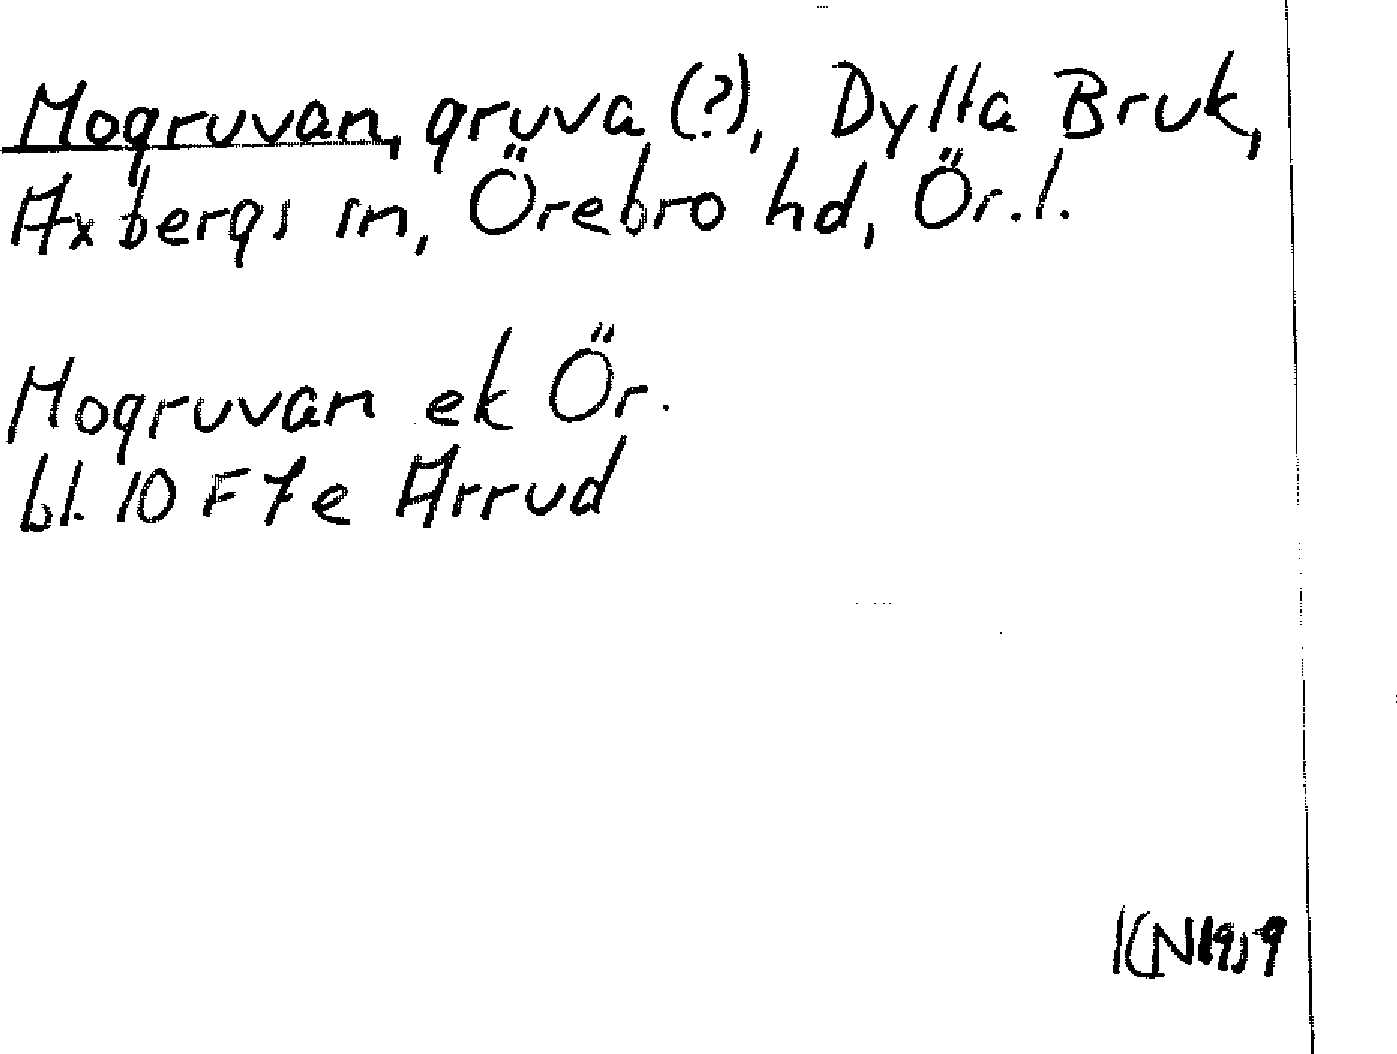 Mogruvan, gruva (?), Dylta Bruk,
Axbergs sn, Örebro hd, Ör. l.
Mogruvan ek Ör.
bl. 10 F 7e Ärrud